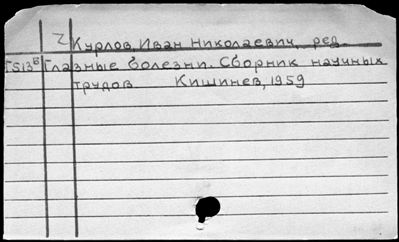 2 Курлов, Иван Николаевич, ред.
Г513б Глазные болезни. Сборник научных
трудов Кишинев, 1959